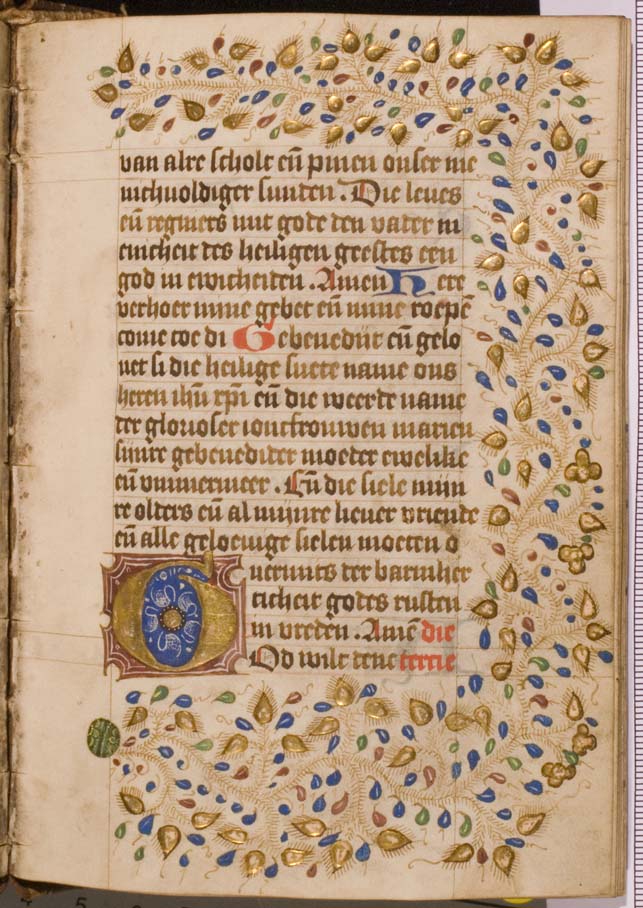 van alre scholt eñ pinen onser me
nichuoldiger sunden . Die leues
eñ regniers mit gode den vader in
eincheit des heiligen geestes een
god in ewicheiden . Amen Here
verhoer mine gebet eñ mine roepẽ
come toe di Gebenedijt eñ gelo
uet si die heilige suete name ons
heren ihũ xp̃i eñ die weerde name
der glorioser ioncfrouwen marien
sijnre gebenedider moeder ewelike
eñ vmmermeer . Eñ die siele mijn
re olders eñ al mijnre lieuer vriende
eñ alle geloeuige sielen moeten o
uermits der barmher
ticheit godes rusten
in vreden . Amẽ die
God wilt dene tercie
4 5